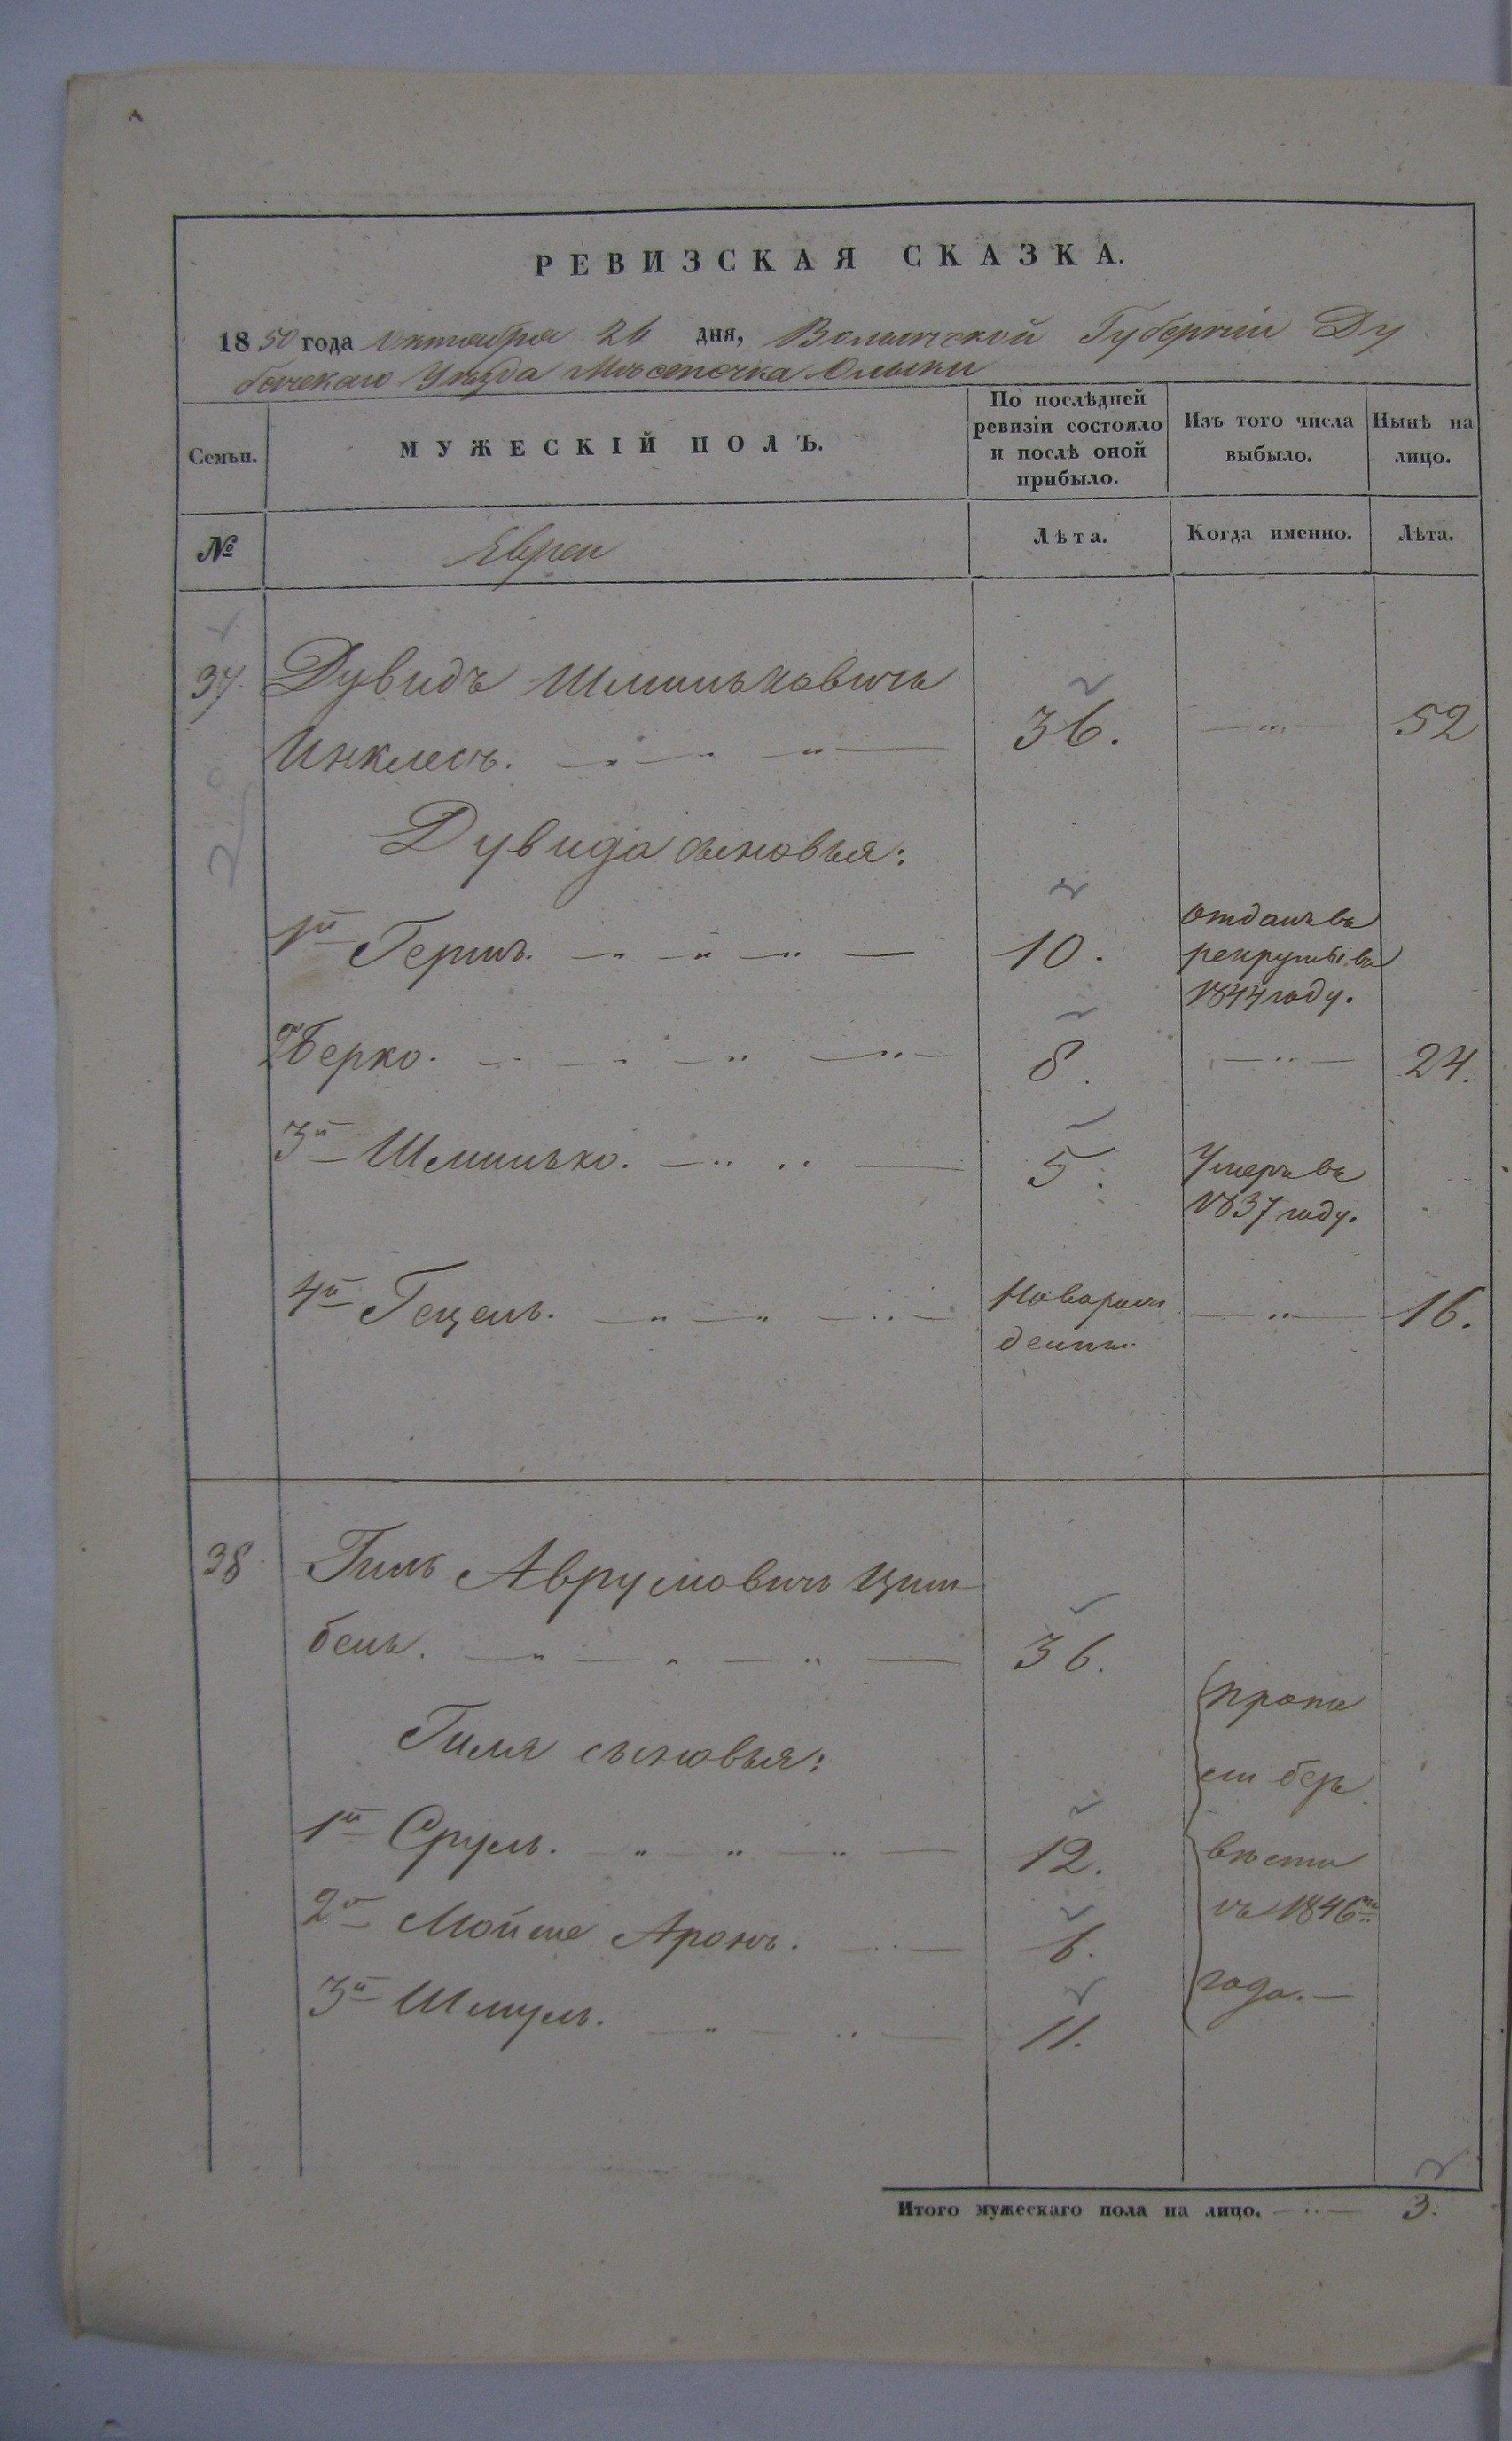 РЕВИЗСКАЯ СКАЗКА.
1850 года октября 26 дня, Волынской Губерніи Ду
бенскаго Уѣзда Мѣстечка Олыки
Семьи.
МУЖЕСКІЙ ПОЛЪ.
По послѣдней ревизіи состояло и послѣ оной прибыло.
Изъ того числа выбыло.
Нынѣ на лицо.
№
Евреи
Лѣта.
Когда именно.
Лѣта.
37. Дувидъ Шлиньковичъ
Инклесъ. 36. 52
Дувида сыновья:
1й Гершъ. 10. отданъ въ рекруты въ 1844 году.
2й Берко. 8. 24.
3й Шлинько. 5. Умеръ въ 1837 году.
4й Гецель. Новорожденный 16.
38 Гиль Аврумовичъ Цим
бель. 36.
Гиля сыновья:
1й Сруль. 12.
2й Мойше Аронъ. 6.
3й Шмуль. 11.
пропа
ли безъ
вѣсти
съ 1846го
года.
Итого мужескаго пола на лицо. 3.